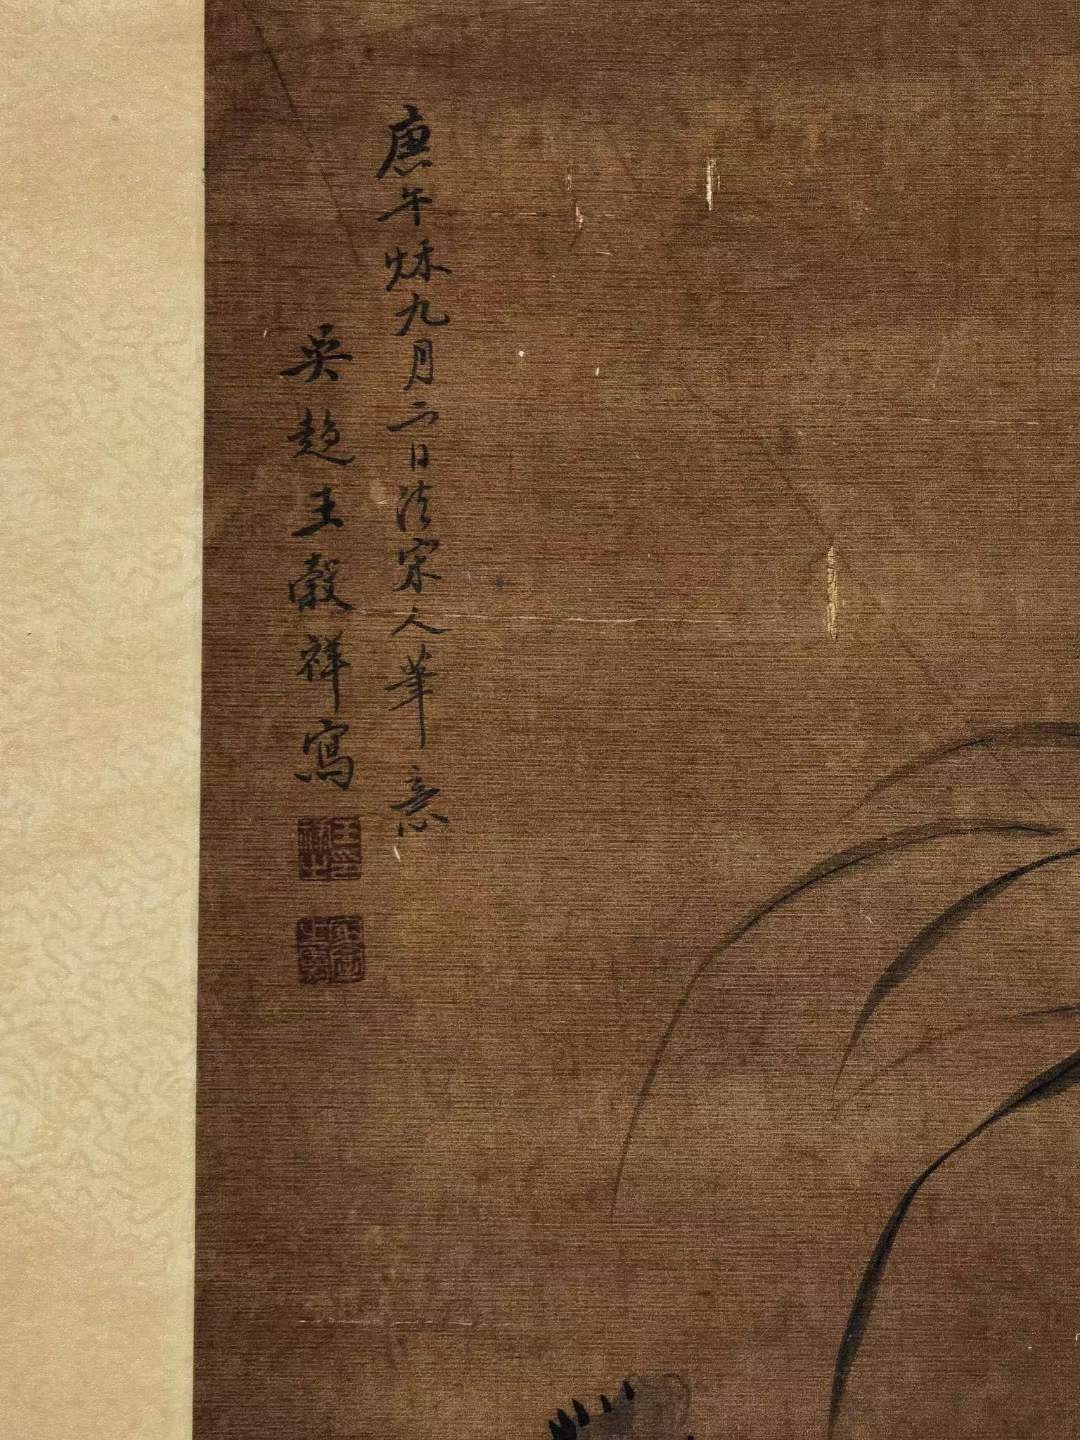 庚午秌九月二日法宋人筆意
吳趨王榖祥寫